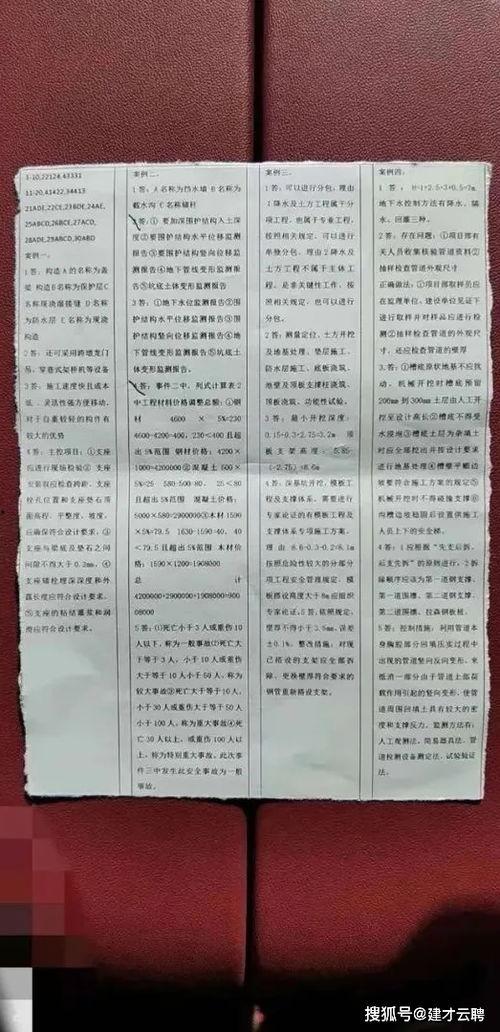 1-10,22124,43331
11-20,41422,34413
21ADE,22CE,23BDE,24AE,
25ABCD,26BCE,27ACD,
28ADE,29ABCD,30ABD
案例一:
1答:构造A的名称为盖
梁 构造B名称为保护层C
名称现浇湿接缝 D名称
为防水层 E名称为现浇
构造
2答:还可采用跨墩龙门
吊、穿巷式架桥机等设备
3答:施工速度快且成本
低、灵活性强方便移动,
对于自重较轻的构件有
较大的优势
4答:主控项目:①支座
应进行现场检验②支座
安装前应检查跨距、支座
栓孔位置和支座垫石顶
面高程、平整度、坡度,
应确保符合设计要求。③
支座与梁底及垫石之间
间隙不得大于0.2mm。④
支座锚栓埋深深度和外
露长度应符合设计要求。
⑤支座的粘结灌浆和润
滑应符合设计要求。
案例二:
1答:A名称为挡水墙 B名称为
截水沟 C名称锚杆
2答:① 要加深围护结构入土深
度②要围护结构水平位移监测
报告③要围护结构竖向位移监
测报告④地下管线变形监测报
告⑤坑底土体变形监测报告
3答:①地下水位监测报告②围
护结构水平位移监测报告③围
护结构竖向位移监测报告④地
下管线变形监测报告⑤坑底土
体变形监测报告。
4答:事件二中,列式计算表2
中工程材料价格调整总额:①钢
材 4600 ×5%=230
4600-4200=400,230<400且超
出5%范围 钢材价格:4200×
1000=4200000②混凝土500×
5%=25 580-500=80, 25<80
且超出5%范围 混凝土价格:
5000×580=2900000③木材1590
×5%=79.5 1630-1590=40, 40
<79.5且超出5%范围 木材价
格:1590×1200=1908000
总 计
4200000+2900000+1908000=900
08000
5答:①死亡小于3人或重伤10
人以下,称为一般事故②死亡大
于等于3人,小于10人或重伤
大于等于10人小于50人,称为
较大事故③死亡大于等于10人,
小于30人或重伤大于等于50人
小于100人,称为重大事故④死
亡30人以上,或重伤100人以
上,称为特别重大事故。此次事
件三中发生此安全事故为一般
事故。
案例三:
1答:可以进行分包,理由
1降水及土方工程属于分
项工程,也属于专业工程,
按照相关规定,可以进行
单独分包。理由2降水及
土方工程不属于主体工
程,是非关键性工作,按
照相关规定,也可以进行
分包。
2答:测量定位、土方开挖
及地基处理、垫层施工、
防水层施工、底板浇筑、
池壁及顶板支撑柱浇筑、
顶板浇筑、功能性试验。
3答:最小开挖深度:
0.15+0.3+2.75=3.2m 顶
板支架高度:5.85-
(-2.75)=8.6m
4答:深基坑开挖,模板工
程及支撑体系,需要进行
专家论证的有模板工程及
支撑体系专项施工方案。
理由8.6-0.3-0.2=8.1m
按照危险性较大的分部分
项工程安全管理规定,模
板搭设高度大于8m应组织
专家论证。5答:依照规定,
壁厚不得小于3.5mm,误差
±0.1%。整改措施:对现
已搭设的支架应全部拆
除,更换壁厚符合要求的
钢管重新搭设支架。
案例四:
1答:H=1+2.5+3+0.5=7m,
地下水控制方法有降水、隔
水、回灌三种。
2答:存在问题:①项目部有
关人员收集核验管道资料②
抽样检查管道外观尺寸
正确做法:①项目部取样员应
在监理单位、建设单位见证下
进行取样并对样品应进行检
测②抽样检查管道的外观尺
寸,还应检查管道的壁厚
3答:①槽底原状地基不应扰
动,机械开挖时槽底预留
200mm到300mm土层由人工开
挖至设计高长②槽底不得受
水浸泡③槽底土层为杂填土
时应全部挖出并按设计要求
进行地基处理④槽壁平顺边
坡要符合施工方案的规定⑤
机械开挖时不得碰撞支撑⑥
沟槽边坡稳固后设置供施工
人员上下的安全梯。
4答:1应根据“先支后拆、
后支先拆”的原则进行。2拆
除顺序应该为第一道钢支撑、
第一道围檩、第二道钢支撑、
第二道围檩、拉森钢板桩。
5答:控制措施:利用管道本
身胸腔部分回填压实过程中
出现的管道竖向反向变形,来
抵消一部分由于管道上部荷
载作用引起的竖向变形,使管
道周围回填土具有较大的密
度和支撑反力。监测方法有:
人工观测法、简易器具法、管
道检测设备测定法、试验验证
法。
搜狐号@建才云聘